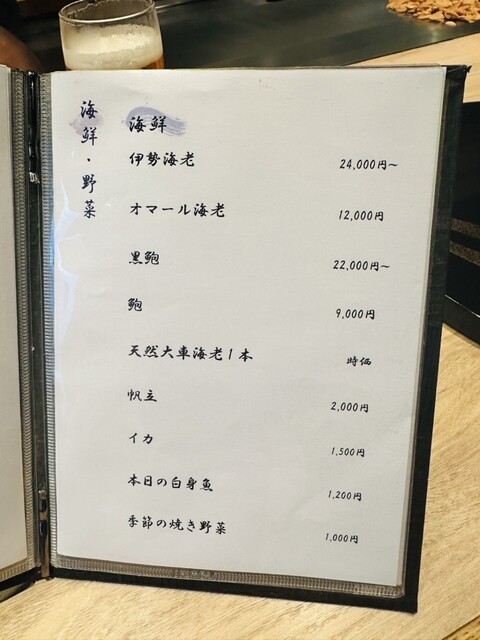 海鮮・野菜
海鮮
伊勢海老 24,000円〜
オマール海老 12,000円
黒鮑 22,000円〜
鮑 9,000円
天然大車海老1本 時価
帆立 2,000円
イカ 1,500円
本日の白身魚 1,200円
季節の焼き野菜 1,000円